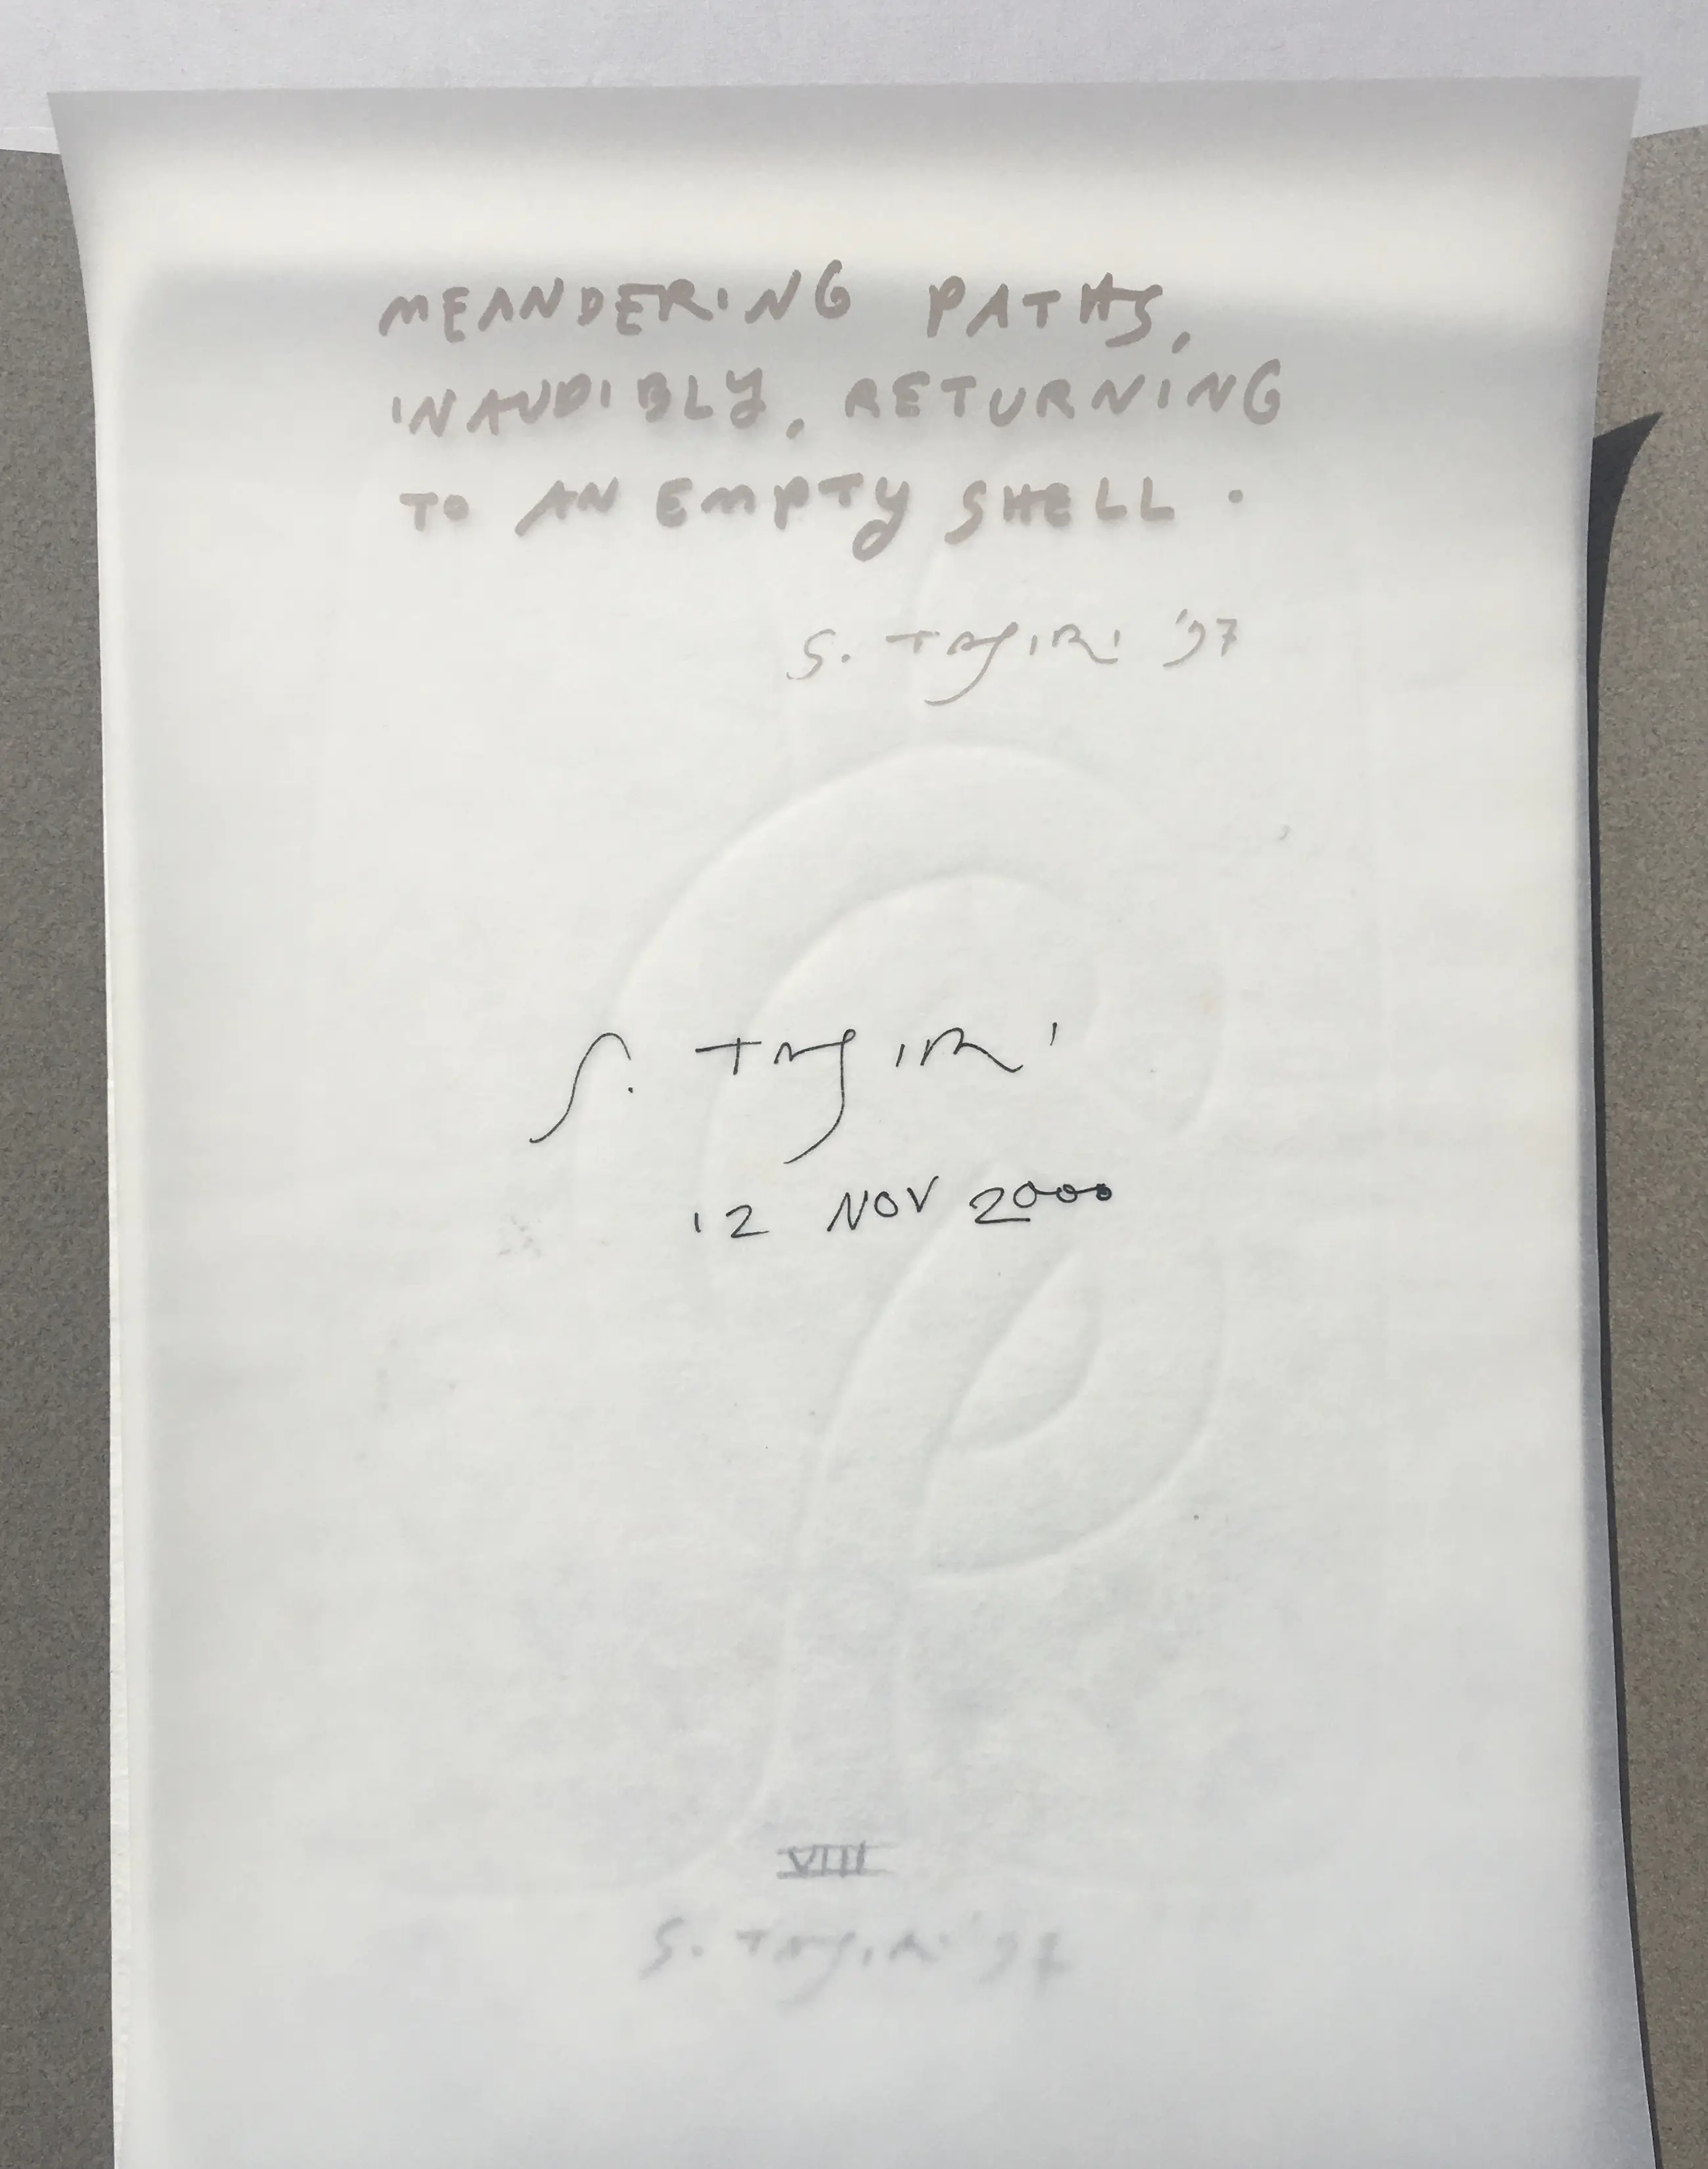 MEANDERING PATHS,
INAUDIBLY, RETURNING
TO AN EMPTY SHELL.
S. TAJIRI '97
S. TAJIRI
12 NOV 2000
VIII
S. TAJIRI '97